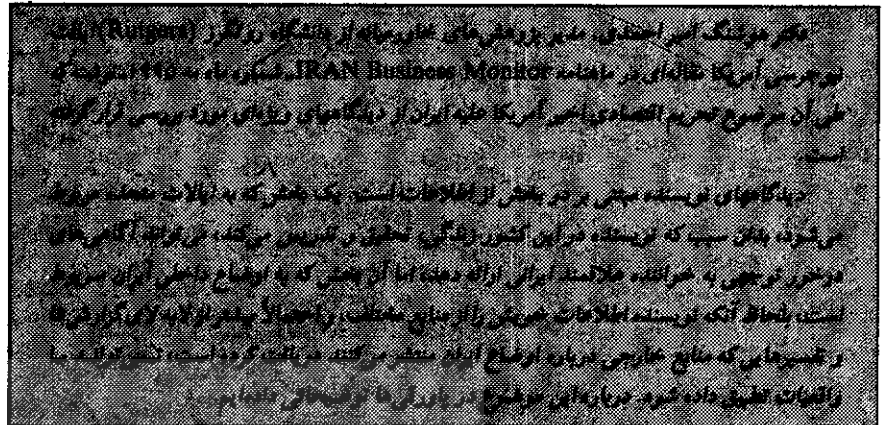 دکتر هوشنگ امیر احمدی، مدیر پژوهش‌های خاورمیانه از دانشگاه روتگرز (Rutgers) ایالت
نیوجرسی آمریکا مقاله‌ای در ماهنامه IRAN Business Monitor شماره ماه مه ۱۹۹۵ نوشته که
طی آن موضوع تحریم اقتصادی اخیر آمریکا علیه ایران از دیدگاههای ویژه‌ای مورد بررسی قرار گرفته
است.
دیدگاههای نویسنده مبتنی بر دو بخش از اطلاعات است. یک بخش که به ایالات متحده مربوط
می‌شود، بدان سبب که نویسنده در این کشور زندگی، تحقیق و تدریس می‌کند، می‌تواند آگاهی‌های
درخور توجهی به خواننده علاقمند ایرانی ارائه دهد. اما آن بخش که به اوضاع داخلی ایران مربوط
است، بلحاظ آنکه نویسنده اطلاعات خویش را از منابع مختلف، و احتمالاً بیشتر از لابه لای گزارش‌ها
و تفسیرهایی که منابع خارجی درباره اوضاع ایران منتشر می‌کنند دریافت کرده است، نمی‌تواند با
واقعیات تطبیق داده شود. درباره این موضوع در پاورقی‌ها توضیحاتی داده‌ایم.